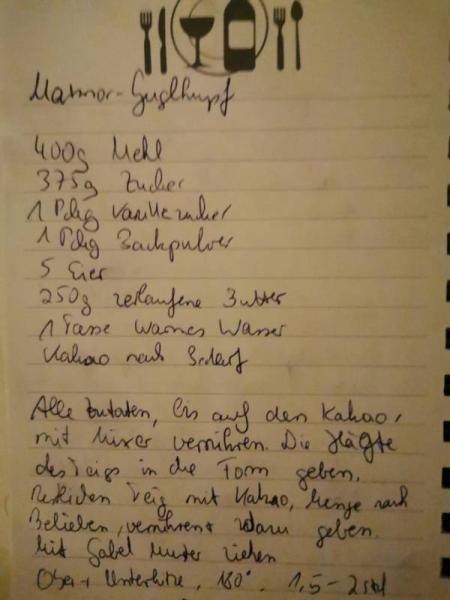 Marmor-Guglhupf
400g Mehl
375g Zucker
1 Pckg Vanillezucker
1 Pckg Backpulver
5 Eier
250g zerlaufene Butter
1 Tasse warmes Wasser
Kakao nach Bedarf
Alle Zutaten, bis auf den Kakao,
mit Mixer verrühren. Die Hälfte
des Teigs in die Form geben.
Restlichen Teig mit Kakao, Menge nach
Belieben, verrühren + dazu geben.
Mit Gabel Muster ziehen
Ober + Unterhitze, 180°, 1,5-2 std